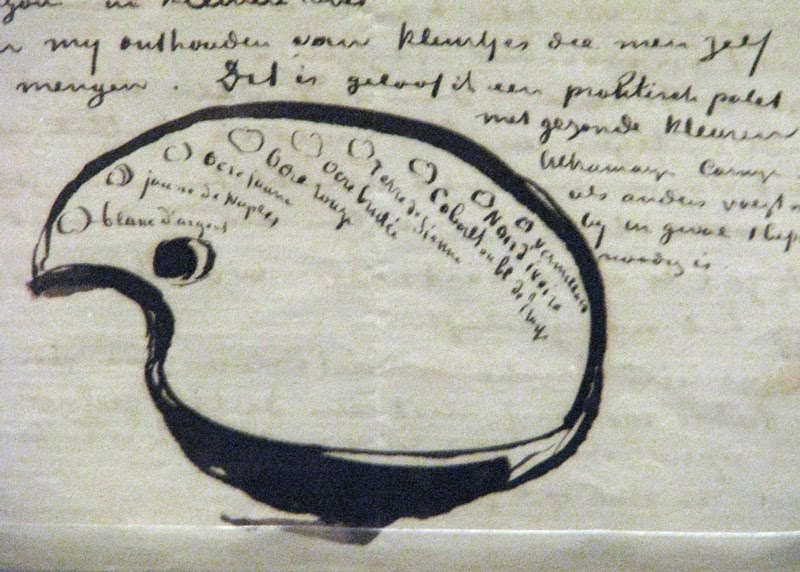 my onthouden van kleurtjes die men zelf
mengen. Dit is geloof ik een praktisch palet
met gezonde kleuren
Ultramarijn Carmijn
als anders
by in geval
noodig is
blanc d'argent
jaune de Naples
Ocre jaune
Ocre rouge
Ocre brulée
Terre de Sienne
Cobalt ou bl. de
Noir d'ivoire
Vermillon